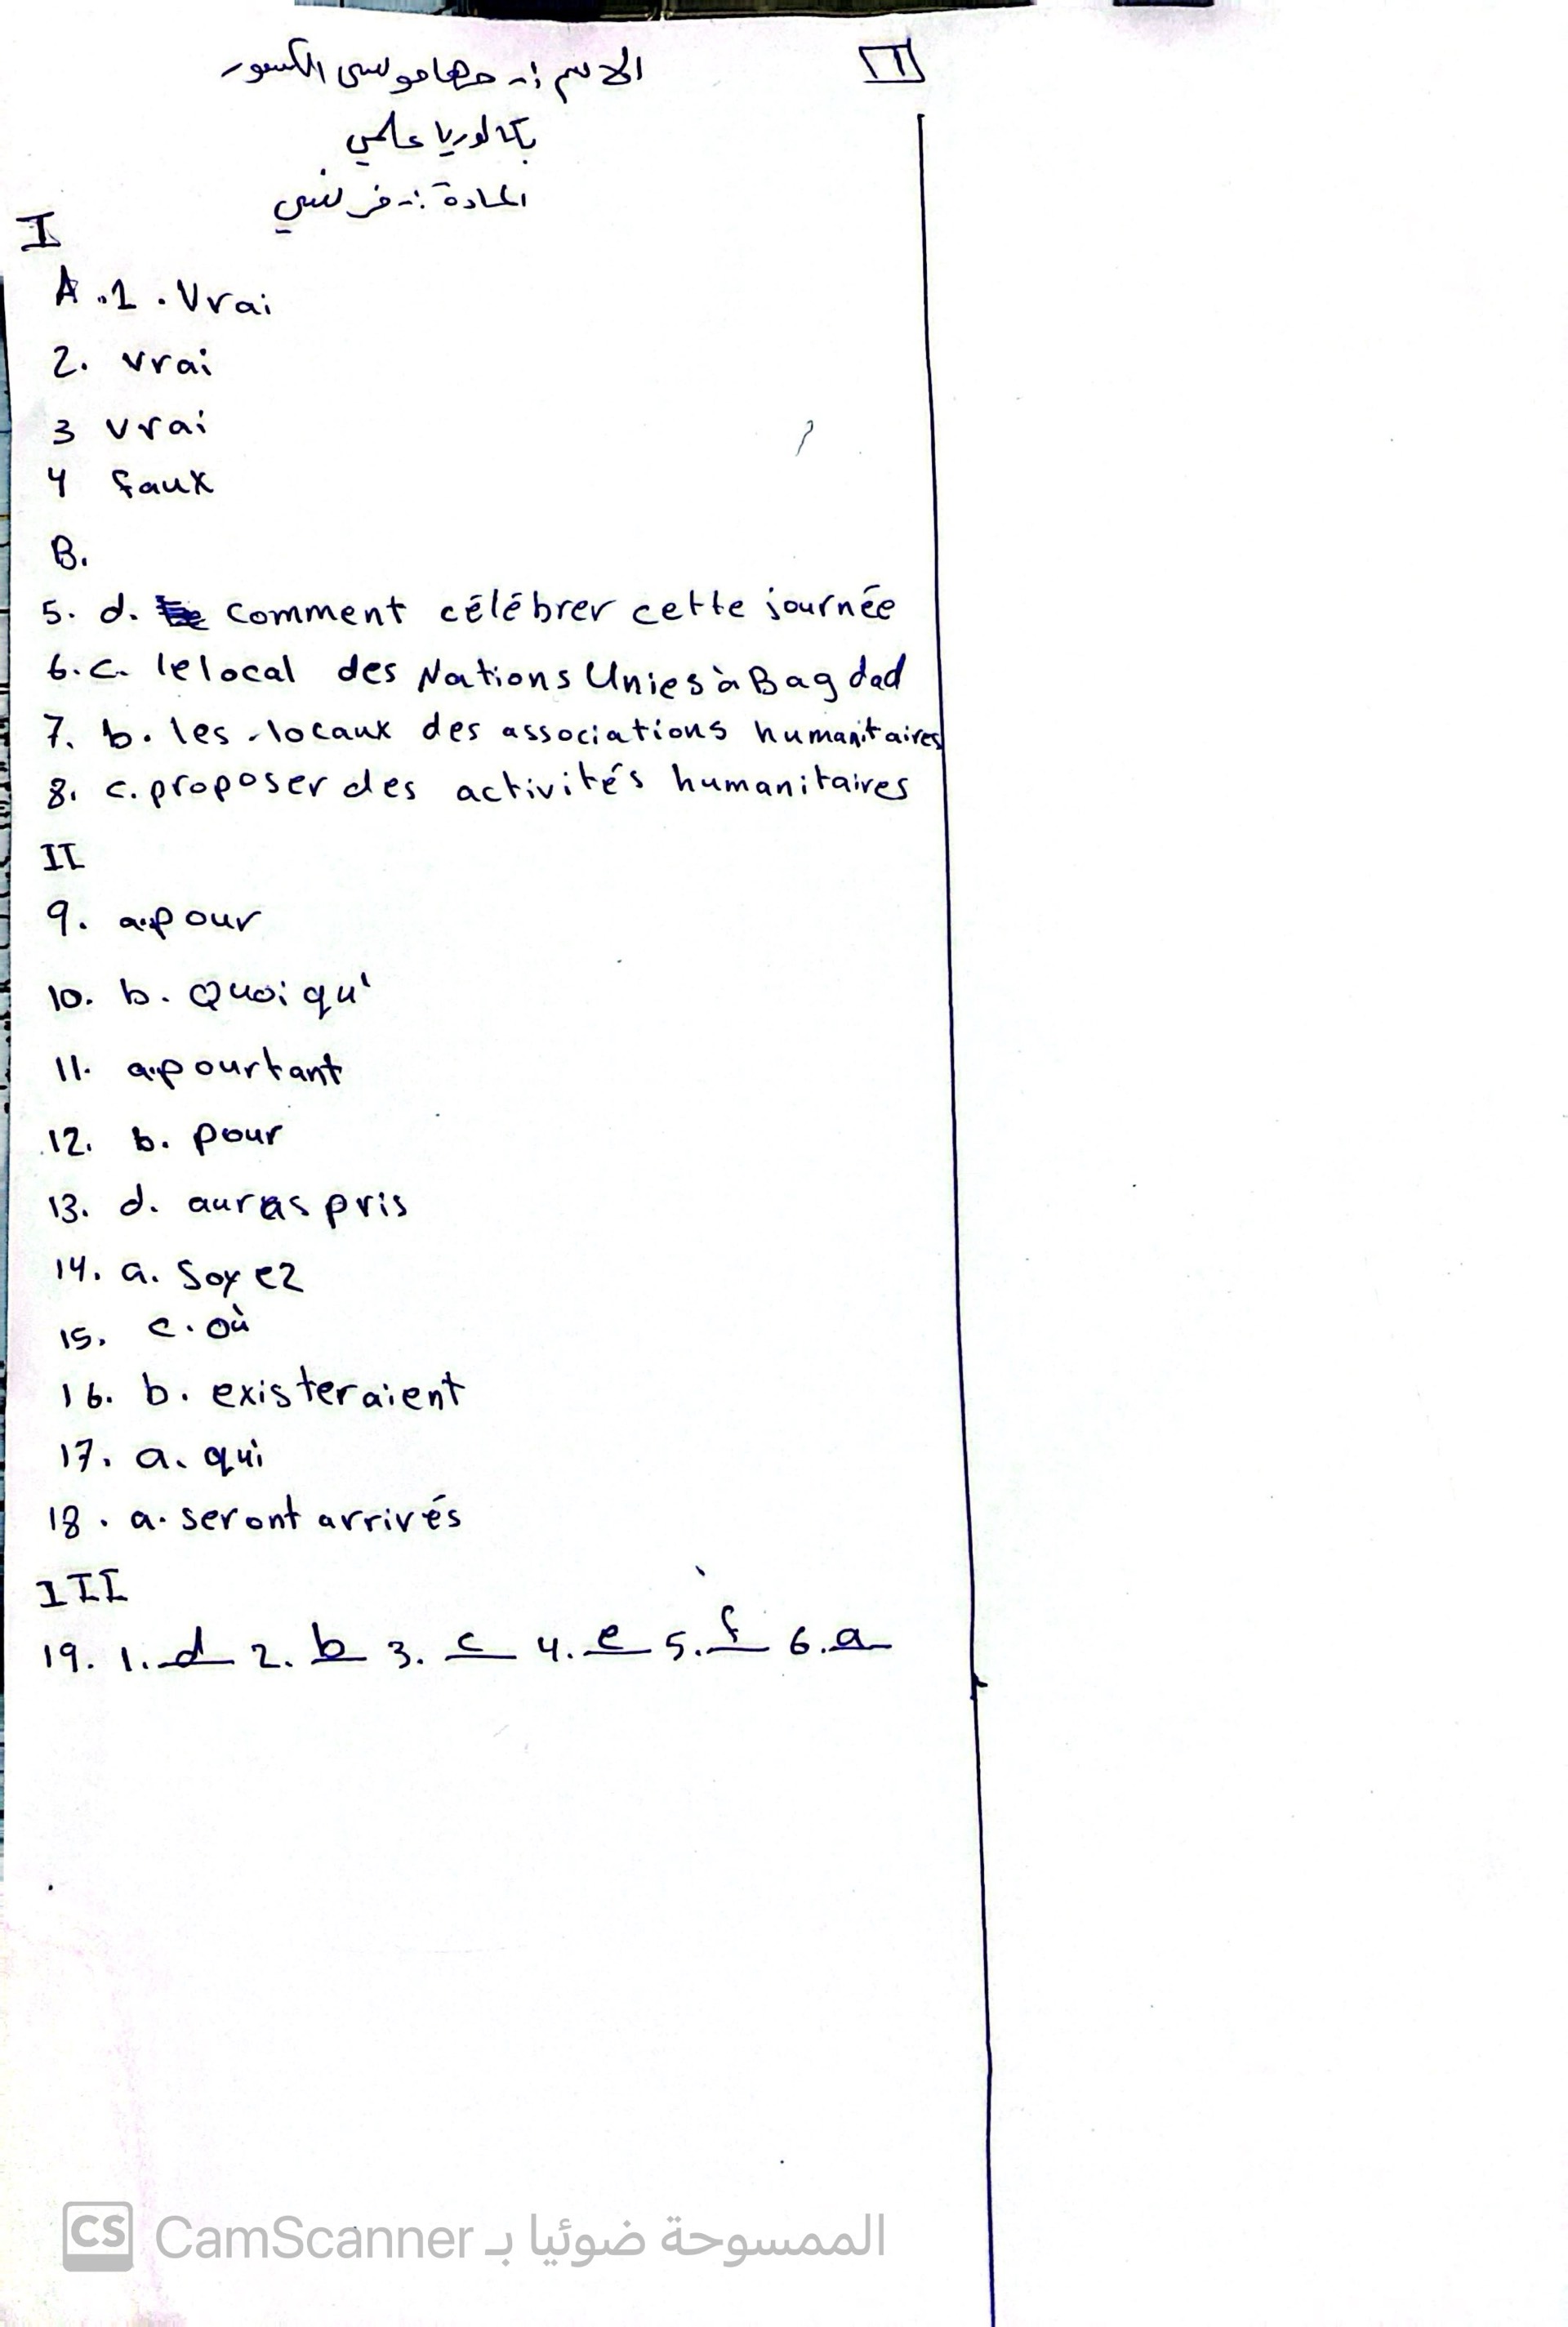 الاسم :- مها موسى الكسور
1
بكالوريا علمي
المادة :- فرنسي
I
A.1. Vrai
2. vrai
3 vrai
4 faux
B.
5. d. comment célébrer cette journée
6. c. le local des Nations Unies à Bagdad
7. b. les locaux des associations humanitaires
8. c. proposer des activités humanitaires
II
9. a. pour
10. b. Quoi qu'
11. a. pourtant
12. b. pour
13. d. auras pris
14. a. Soyez
15. c. où
16. b. existeraient
17. a. qui
18. a. seront arrivés
III
19. 1. d 2. b 3. c 4. e 5. f 6. a
CS CamScanner الممسوحة ضوئيا بـ